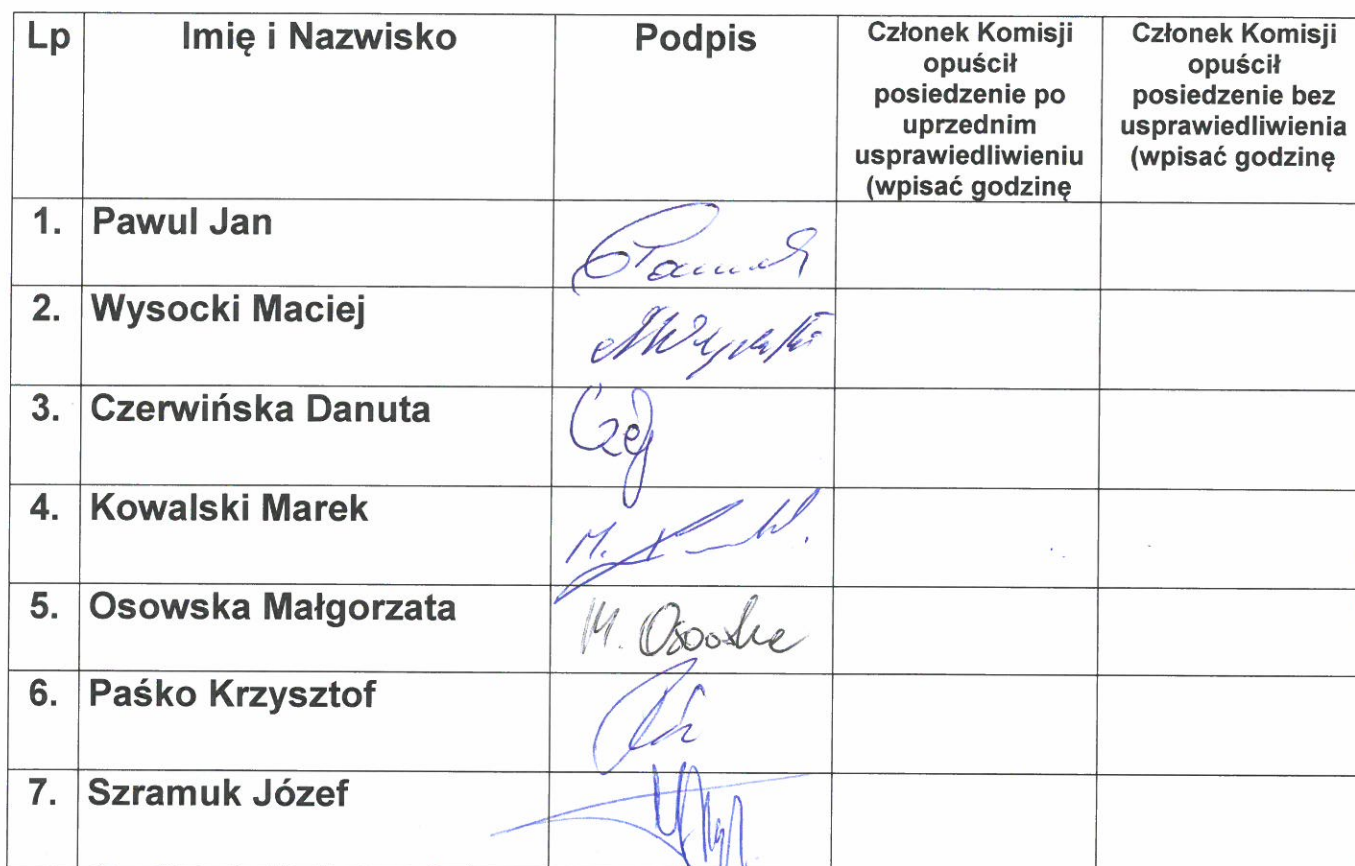 Lp Imię i Nazwisko Podpis Członek Komisji opuścił posiedzenie po uprzednim usprawiedliwieniu (wpisać godzinę Członek Komisji opuścił posiedzenie bez usprawiedliwienia (wpisać godzinę
1. Pawul Jan
2. Wysocki Maciej
3. Czerwińska Danuta
4. Kowalski Marek M.
5. Osowska Małgorzata M. Osowska
6. Paśko Krzysztof
7. Szramuk Józef